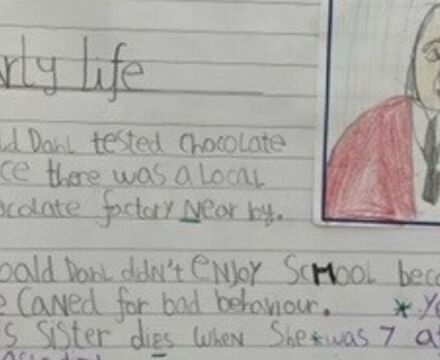 rly life
ld Dahl tested chocolate
ce there was a local
ocolate factory Near by.
oald Dahl ddn't enjoy School bec
e caned for bad behaviour. *
s sister dies when She*was 7 a